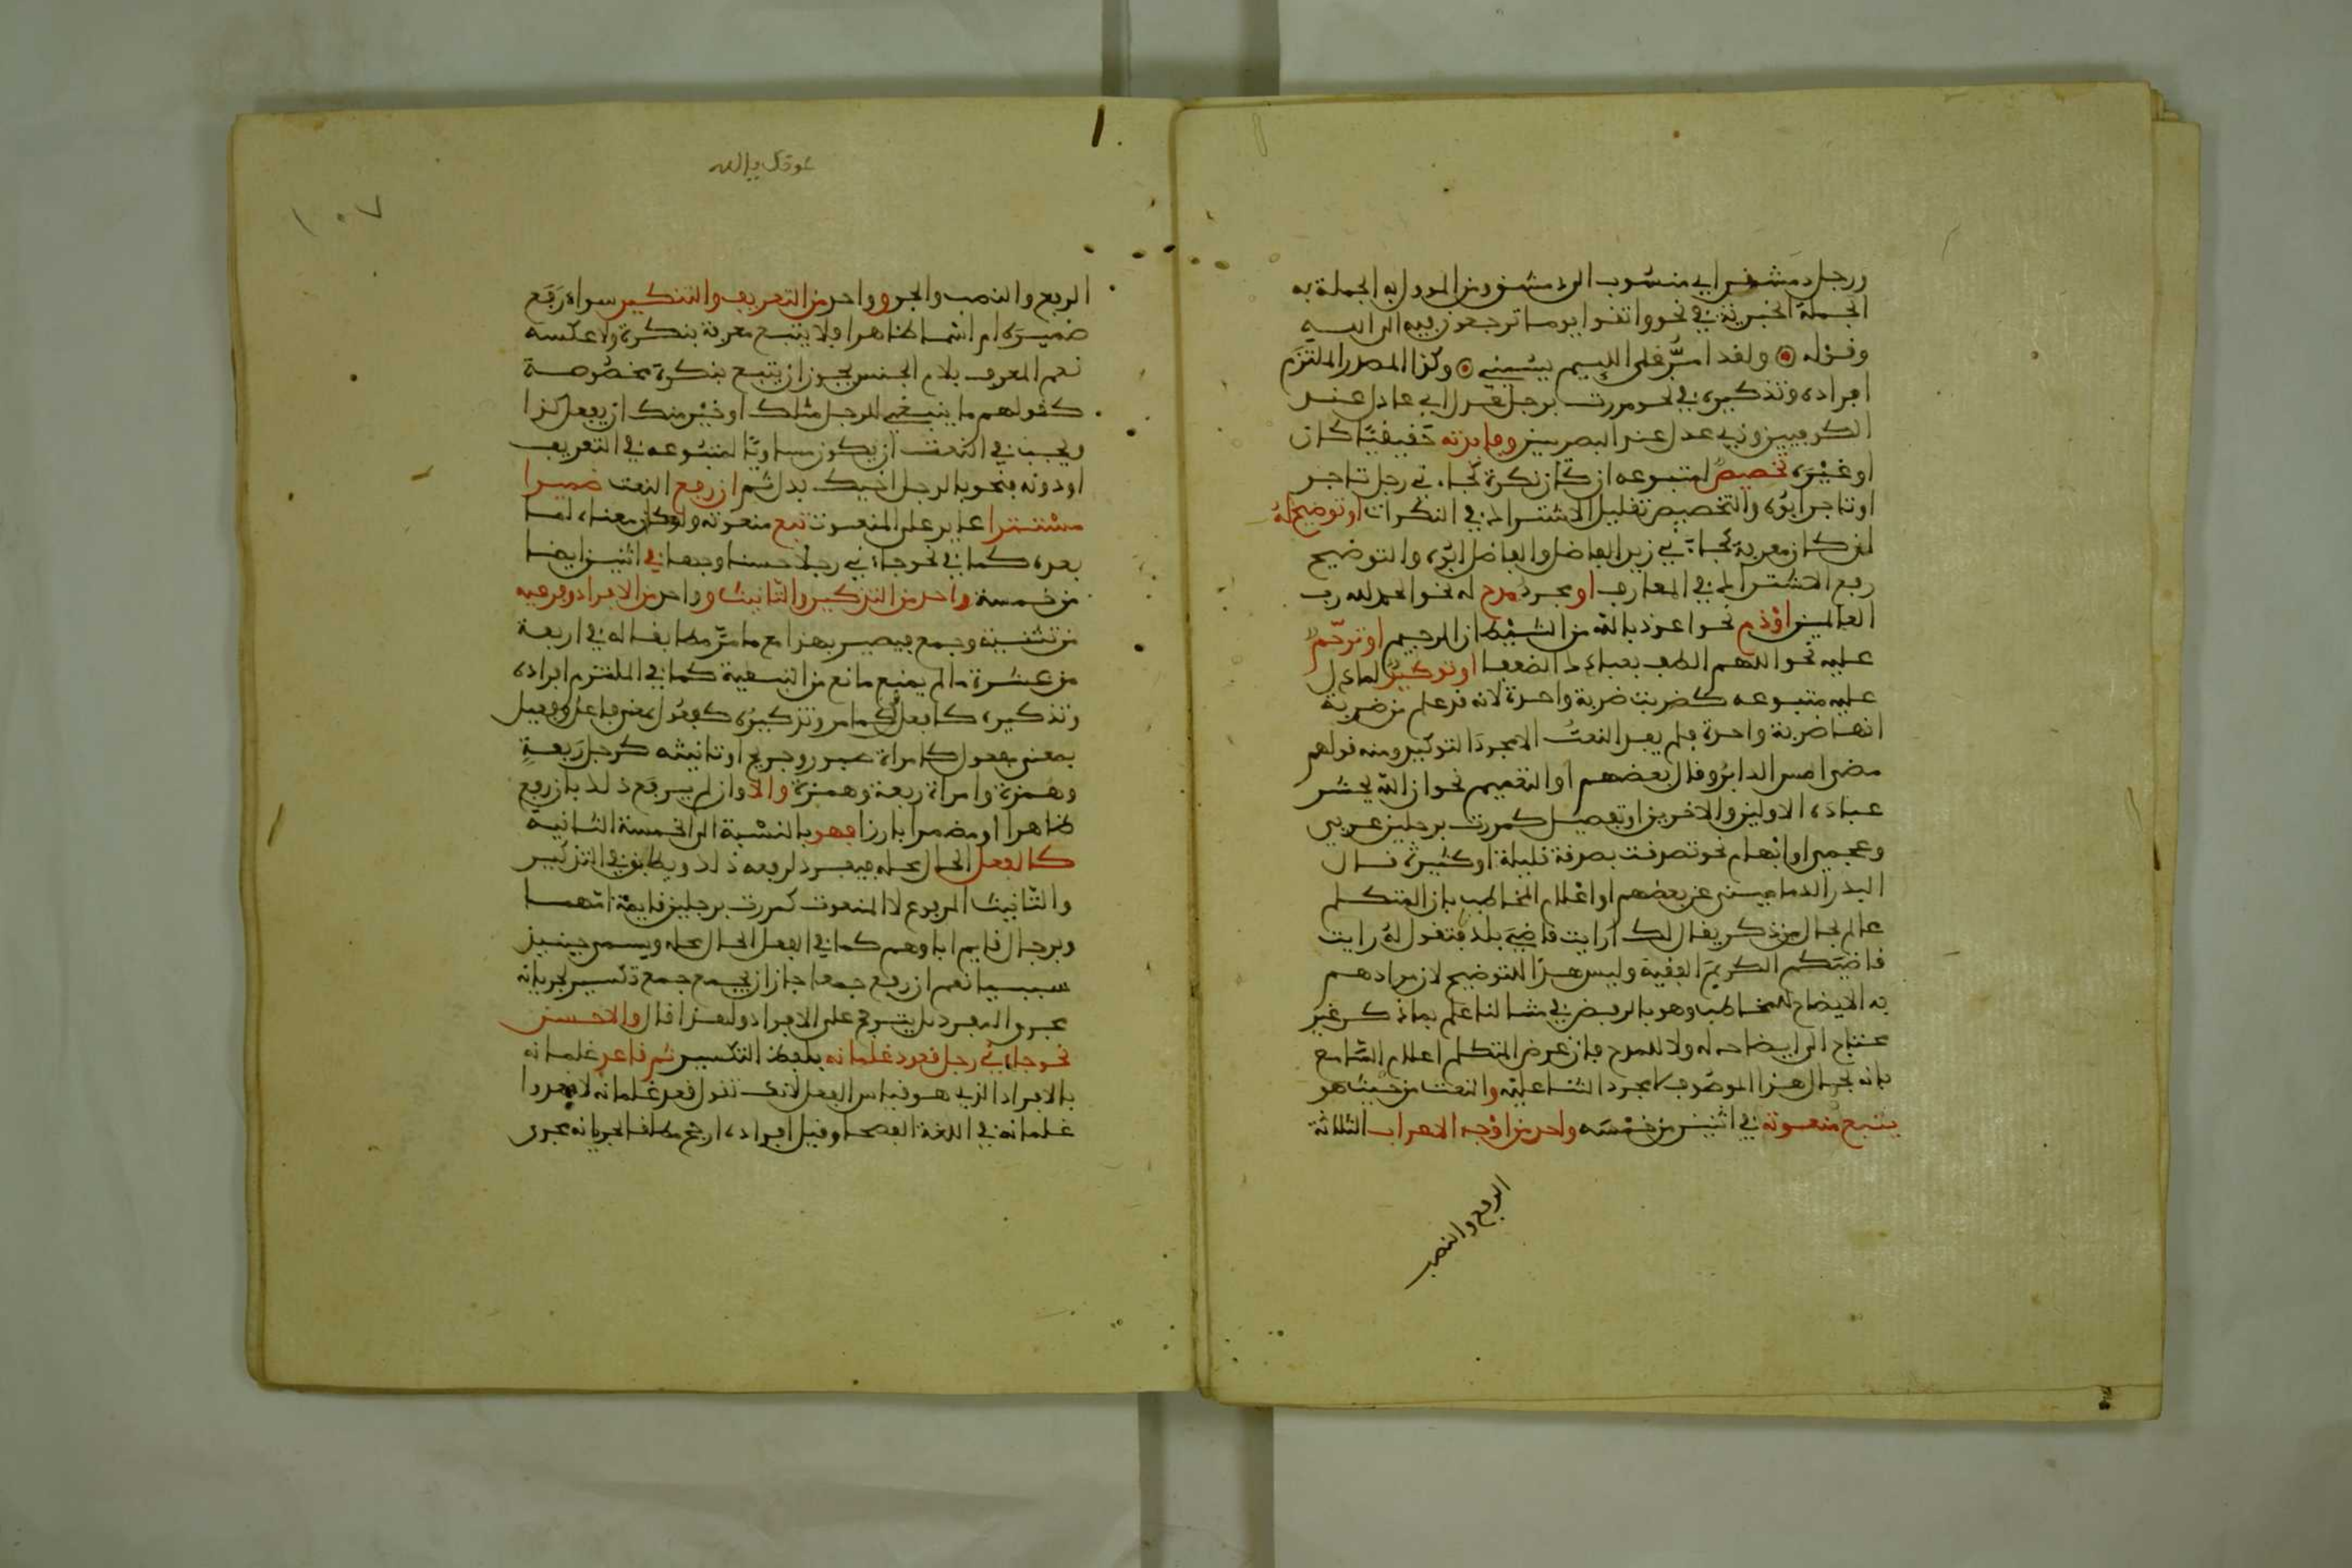 ورجل دمشقي اي منسوب الى دمشق ومن المؤول به الجملة به
الجملة الخبرية في نحو واتقوا يوما ترجعون فيه الى الله
وقوله ولقد امر على اللئيم يسبني وكذا المصدر الملتزم
افراده وتذكيره في نحو مررت برجل عدل اي عادل عند
الكوفيين وذي عدل عند البصريين وفايدته حقيقيا كان
او غيره تخصيص لمتبوعه ان كان نكرة كجاءني رجل تاجر
او تاجر ابوه والتخصيص تقليل الاشتراك في النكرات او توضيح له
ان كان معرفة كجاءني زيد الفاضل والفاضل ابوه والتوضيح
رفع الاشتراك في المعارف او مجرد مدح له نحو الحمد لله رب
العالمين او ذم نحو اعوذ بالله من الشيطان الرجيم او ترحم
عليه نحو اللهم الطف بعبادك الضعفا او توكيد لما دل
عليه متبوعه كضربت ضربة واحدة لانه قد علم من ضربة
انها ضربة واحدة فلم يفد النعت الا مجرد التوكيد ومنه قولهم
مضى امس الدابر وقال بعضهم او التعميم نحو ان الله يحشر
عباده الاولين والاخرين او تفصيل كمررت برجلين عربي
وعجمي او ابهام نحو تصدقت بصدقة قليلة او كثيرة قال
البدر الدماميني عن بعضهم او اعلام المخاطب بان المتكلم
عالم بحال من ذكر يقال لك ارايت قاضي بلد فتقول له رايت
قاضيكم الكريم الفقيه وليس هذا للتوضيح لان مرادهم
به الايضاح للمخاطب وهو بالفرض في مثالنا علم بما ذكر غير
محتاج الى ايضاحه له ولا للمدح فان غرض المتكلم اعلام السامع
بانه بحال هذا الموصوف لا مجرد الثنا عليه والنعت من حيث هو
يتبع منعوته في اثنين من خمسة واحد من اوجه الاعراب الثلاثة
الرفع والنصب
١٠٧
الرفع والنصب والجر وواحد من التعريف والتنكير سواء رفع
ضميره ام اسما ظاهرا فلا يتبع معرفة بنكرة ولا عكسه
نعم المعرف بلام الجنس يجوز ان يتبع بنكرة مخصوصة
كقولهم ما ينبغي للرجل مثلك او خير منك ان يفعل كذا
ويجب في النعت ان يكون مساويا لمتبوعه في التعريف
او دونه فنحو بالرجل اخيك بدل ثم ان رفع النعت ضميرا
مستترا عايدا على المنعوت تبع منعوته ولو كان معناه لما
بعده كما في نحو جاءني رجل حسن وجها في اثنين ايضا
من خمسة واحد من التذكير والتانيث وواحد من الافراد وفرعيه
من تثنية وجمع فيصير بهذا مع ما مر مطابقا له في اربعة
من عشرة ما لم يمنع مانع من التبعية كما في الملتزم افراده
وتذكيره كافعل كما مر وتذكيره كفعول بمعنى فاعل وفعيل
بمعنى مفعول كامراة صبور وجريح او تانيثه كرجل ربعة
وهمزة وامراة ربعة وهمزة والا وان لم يرفع ذلك بان رفع
ظاهرا او مضمرا بارزا فهو بالنسبة الى الخمسة الثانية
كالفعل الحال محله فيفرد لرفعه ذلك ويطابق في التذكير
والتانيث المرفوع لا المنعوت كمررت برجلين قايمة امهما
وبرجال قايم اباوهم كما في الفعل الحال محله ويسمى حينيذ
سببيا نعم ان رفع جمعا جاز ان يجمع جمع تكسير لجريانه
مجرى المفرد بل يترجح على الافراد ولهذا قال والاحسن
نحو جاءني رجل قعود غلمانه بلفظ التكسير ثم قاعد غلمانه
بالافراد الذي هو قياس الفعل لانك تقول قعد غلمانه لا يقعدوا
غلمانه في اللغة الفصحا وقيل افراده ارجح مطلقا لجريانه مجرى